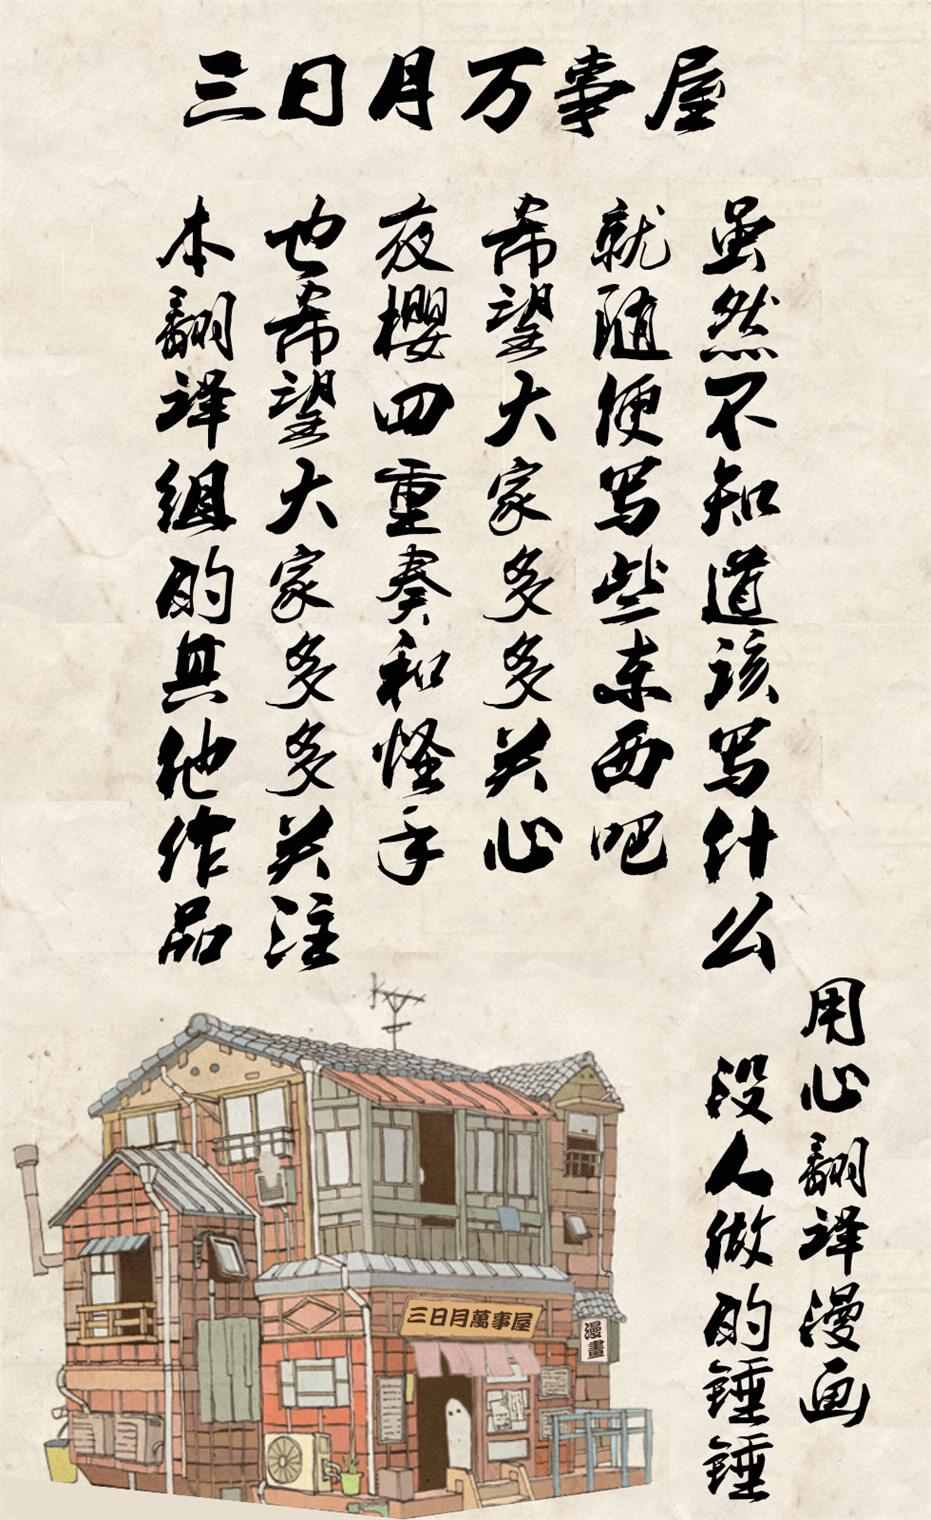 三日月万事屋
虽然不知道该写什么
就随便写些东西吧
希望大家多多关心
夜樱四重奏和怪手
也希望大家多多关注
本翻译组的其他作品
用心翻译漫画
没人做的锤锤
三日月萬事屋
漫畫